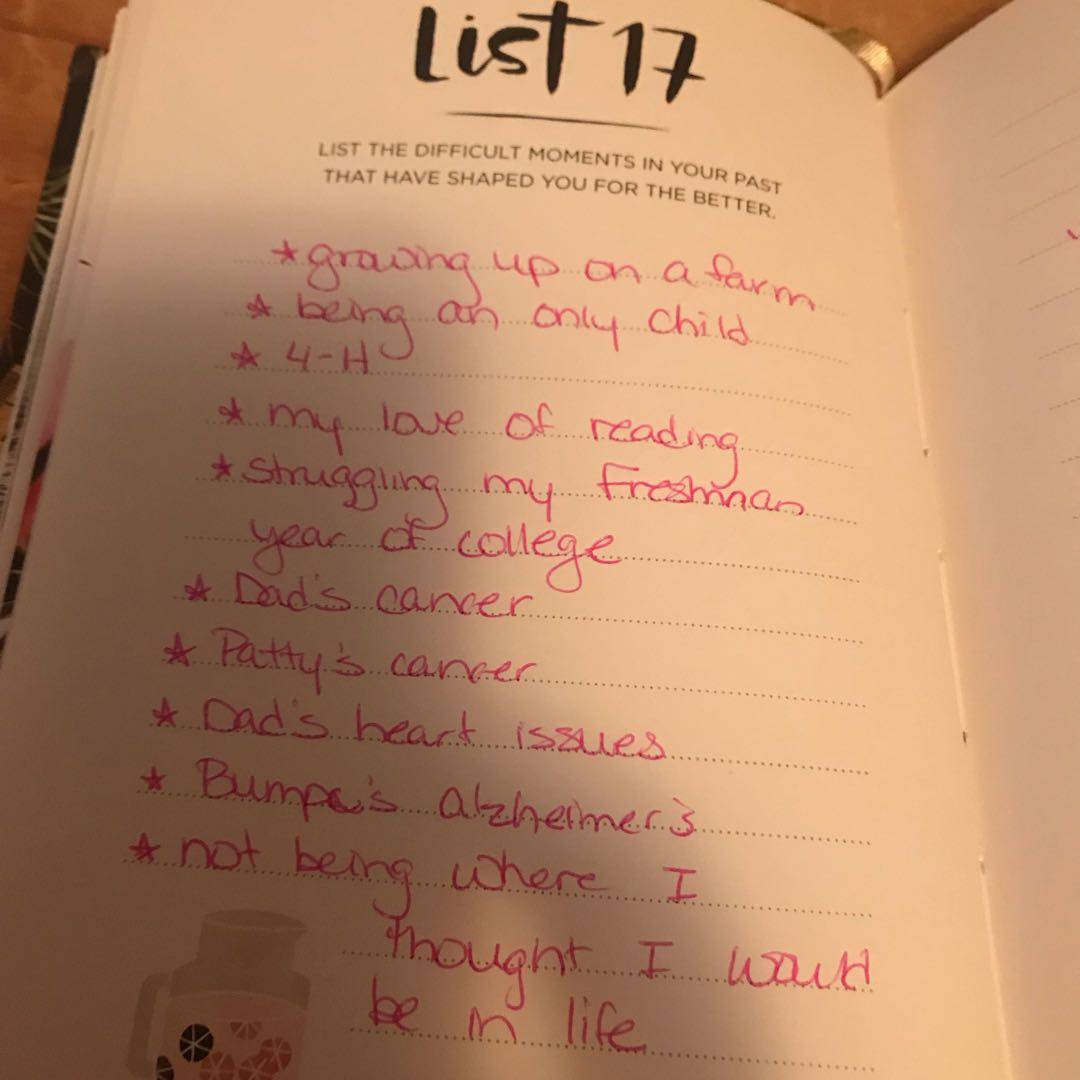 List 17
LIST THE DIFFICULT MOMENTS IN YOUR PAST
THAT HAVE SHAPED YOU FOR THE BETTER.
* growing up on a farm
* being an only child
* 4-H
* my love of reading
* struggling my Freshman
year of college
* Dad's cancer
* Patty's cancer
* Dad's heart issues
* Bumpa's alzheimer's
* not being where I
thought I would
be in life